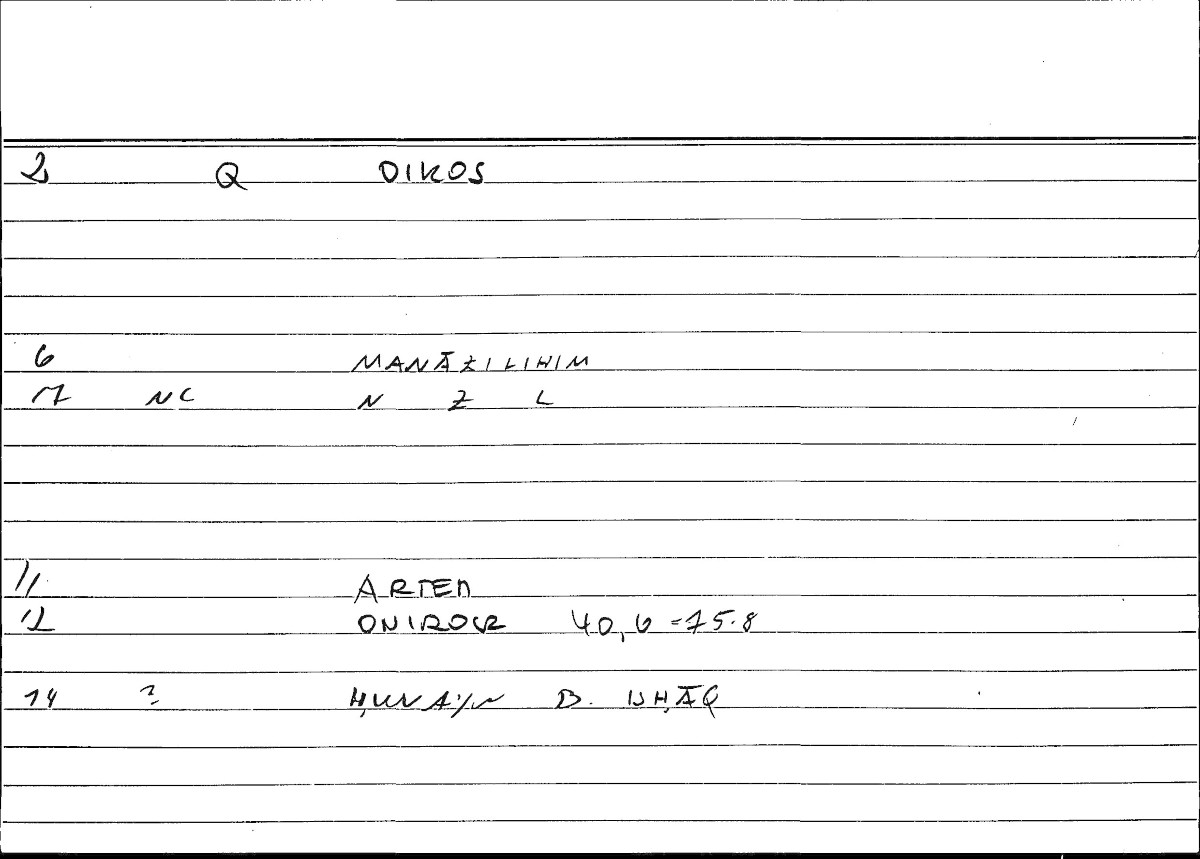 2 Q OIKOS
6 MANĀZILIHIM
17 NC N Z L
11 ARTEM
12 ONIROCR 40,6 = 75.8
14 ? ḤUNAYN B. ISḤĀQ